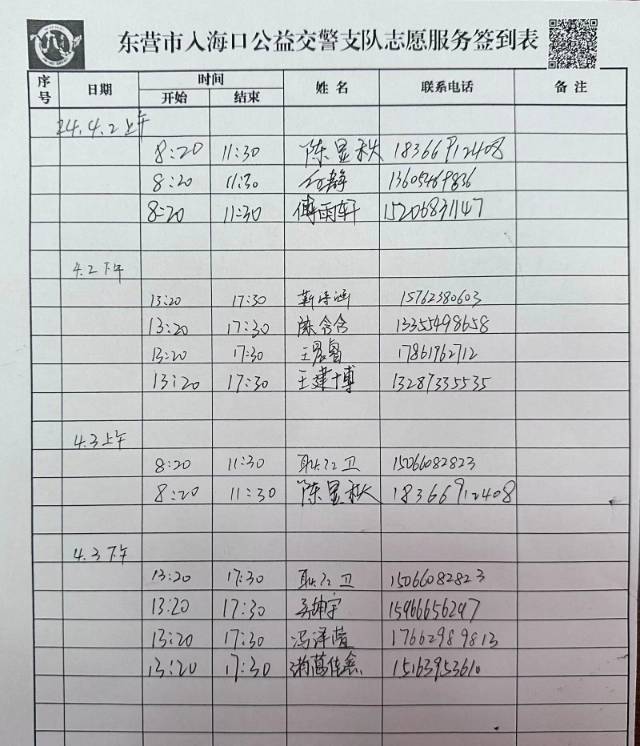 东营市入海口公益交警支队志愿服务签到表
序号 日期 时间 姓名 联系电话 备注
开始 结束
24.4.2上午
8:20 11:30 陈显秋 18366912408
8:20 11:30 静 13605469836
8:20 11:30 傅雨轩 15206831147
4.2下午
13:20 17:30 15762380603
13:20 17:30 陈含含 13355498658
13:20 17:30 17861962712
13:20 17:30 王建博 13287335535
4.3上午
8:20 11:30 卫 15066082823
8:20 11:30 陈显秋 18366912408
4.3下午
13:20 17:30 卫 15066082823
13:20 17:30 宇 15966656247
13:20 17:30 冯泽莹 17662989813
13:20 17:30 15163953610